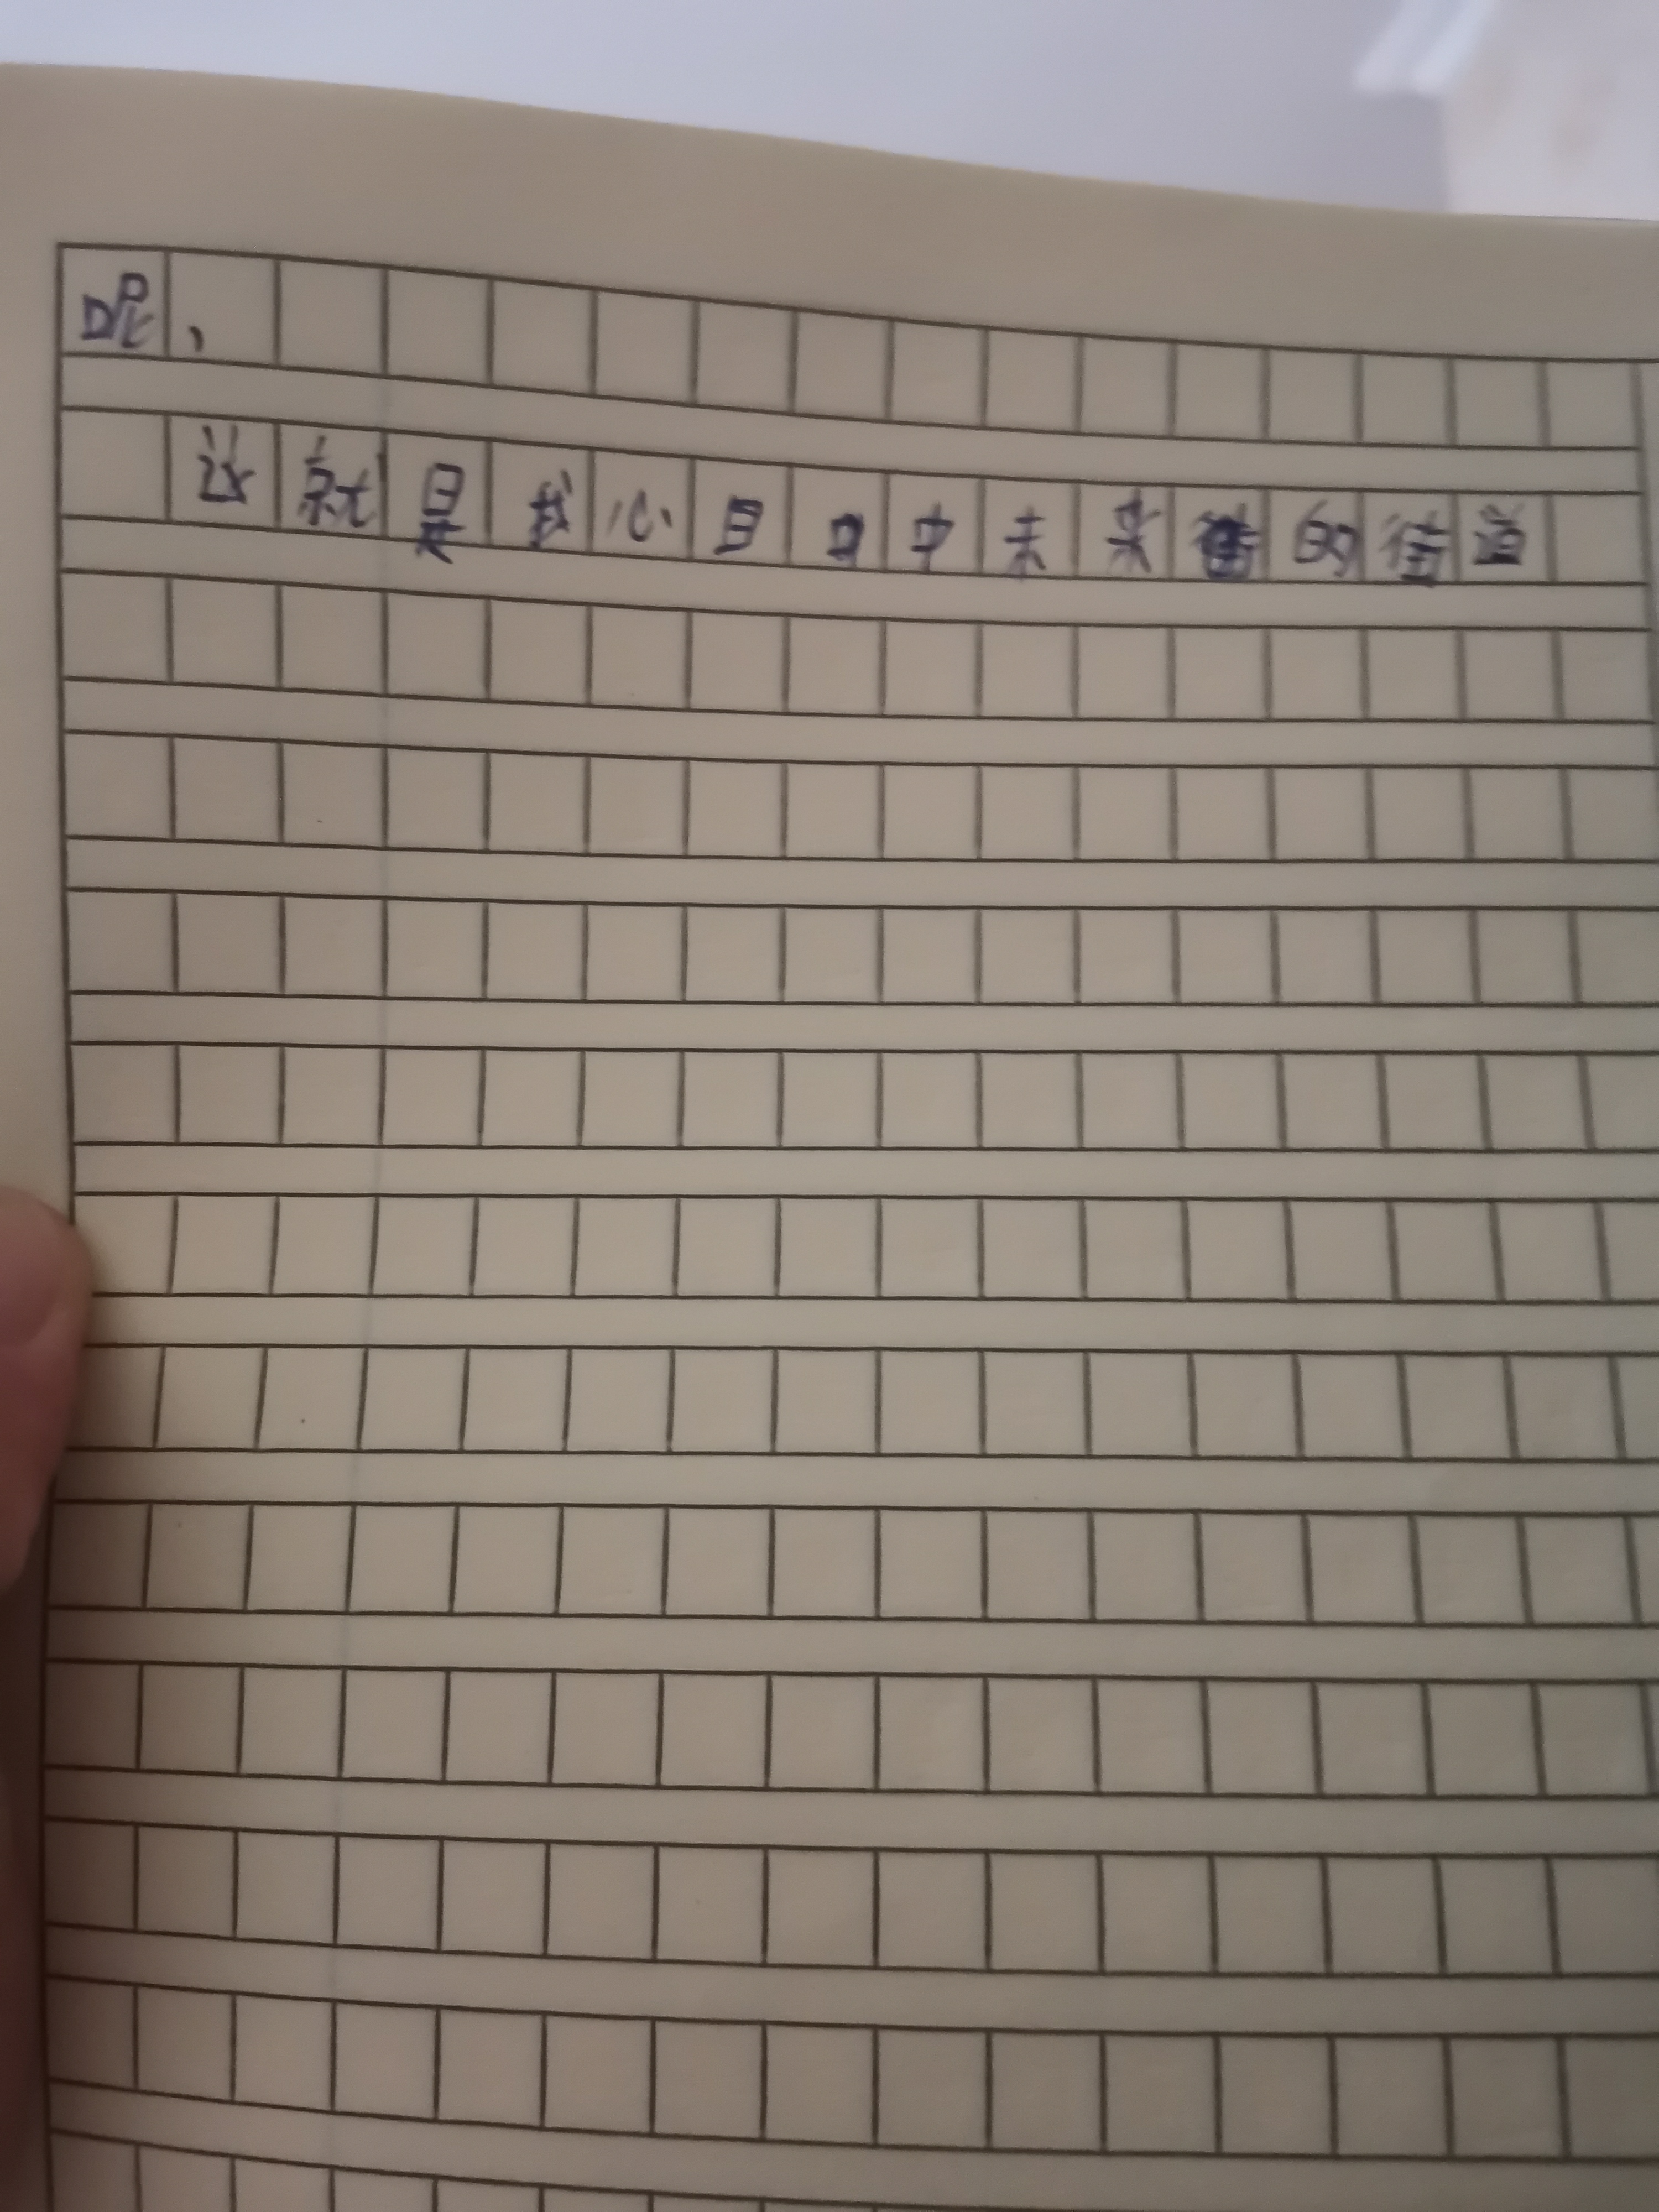 呢、
这就是我心目中未来的街道